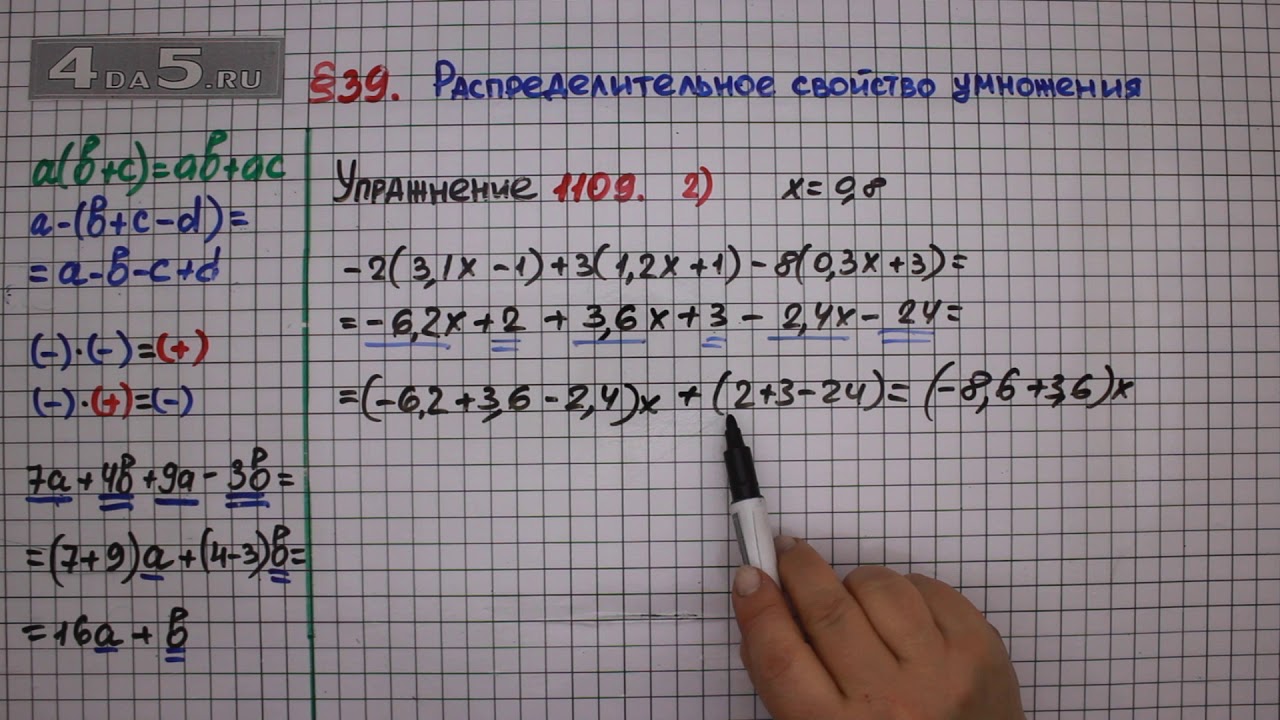 4DA5.RU
§39. Распределительное свойство умножения
a(b+c)=ab+ac
a-(b+c-d)=
=a-b-c+d
(-)·(-)=(+)
(-)·(+)=(-)
7a+4b+9a-3b=
=(7+9)a+(4-3)b=
=16a+b
Упражнение 1109. 2) x=0,8
-2(3,1x-1)+3(1,2x+1)-8(0,3x+3)=
=-6,2x+2+3,6x+3-2,4x-24=
=(-6,2+3,6-2,4)x+(2+3-24)=(-8,6+3,6)x